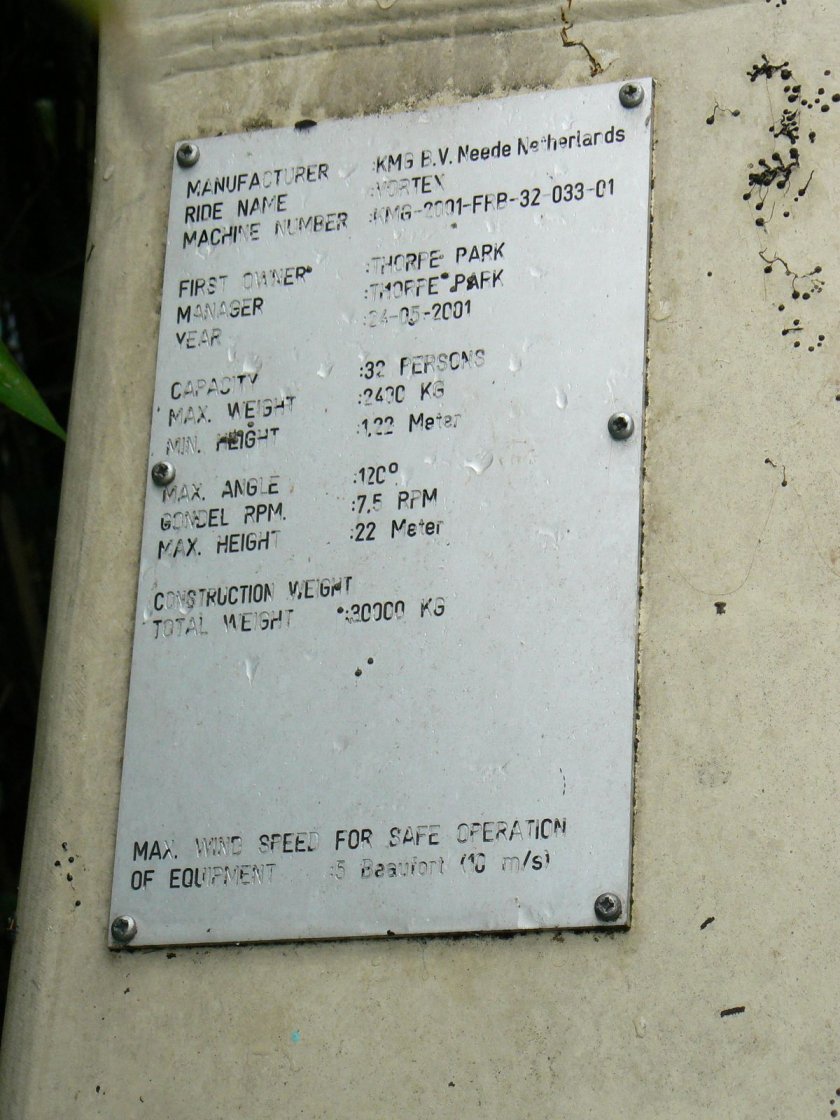 MANUFACTURER :KMG B.V. Neede Netherlands
RIDE NAME :VORTEX
MACHINE NUMBER :KMG-2001-FRB-32-033-01
FIRST OWNER :THORPE PARK
MANAGER :THORPE PARK
YEAR :24-05-2001
CAPACITY :32 PERSONS
MAX. WEIGHT :2400 KG
MIN. HEIGHT :1,22 Meter
MAX. ANGLE :120°
GONDEL RPM. :7,5 RPM
MAX. HEIGHT :22 Meter
CONSTRUCTION WEIGHT
TOTAL WEIGHT :30000 KG
MAX. WIND SPEED FOR SAFE OPERATION
OF EQUIPMENT :5 Beaufort (10 m/s)